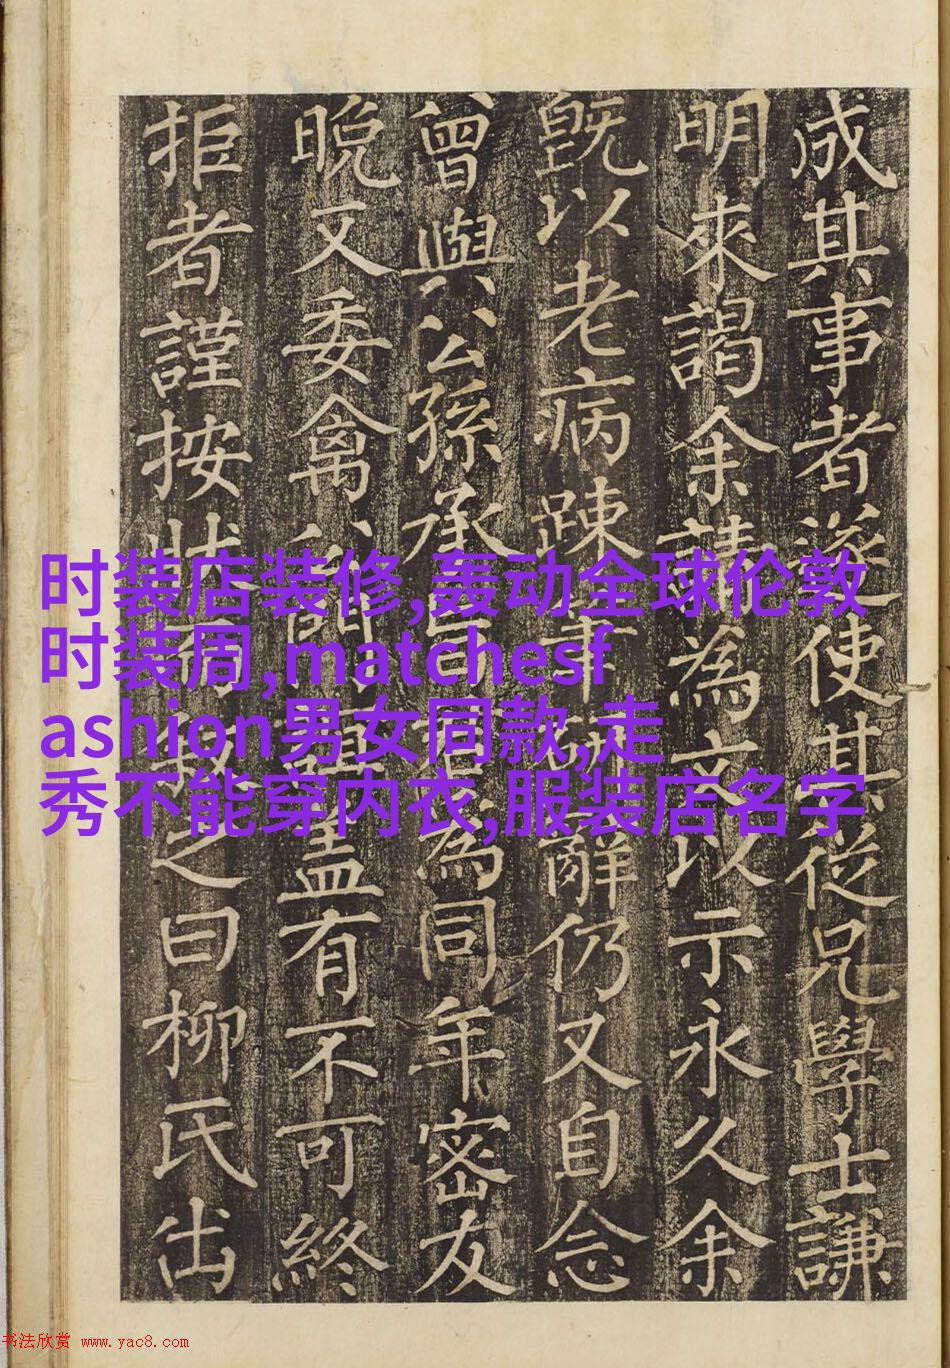 成其事者遂使其從兄學士謙
明來謁余請為文以示永久余
既以老病踈辭仍又自念
曾與公孫承旨為同年密友
晚又委禽門盖有不可終
拒者謹按狀之曰柳氏出
时装店装修,轰动全球伦敦
时装周,matchesf
ashion男女同款,走
秀不能穿内衣,服装店名字
书法欣赏 www.yac8.com